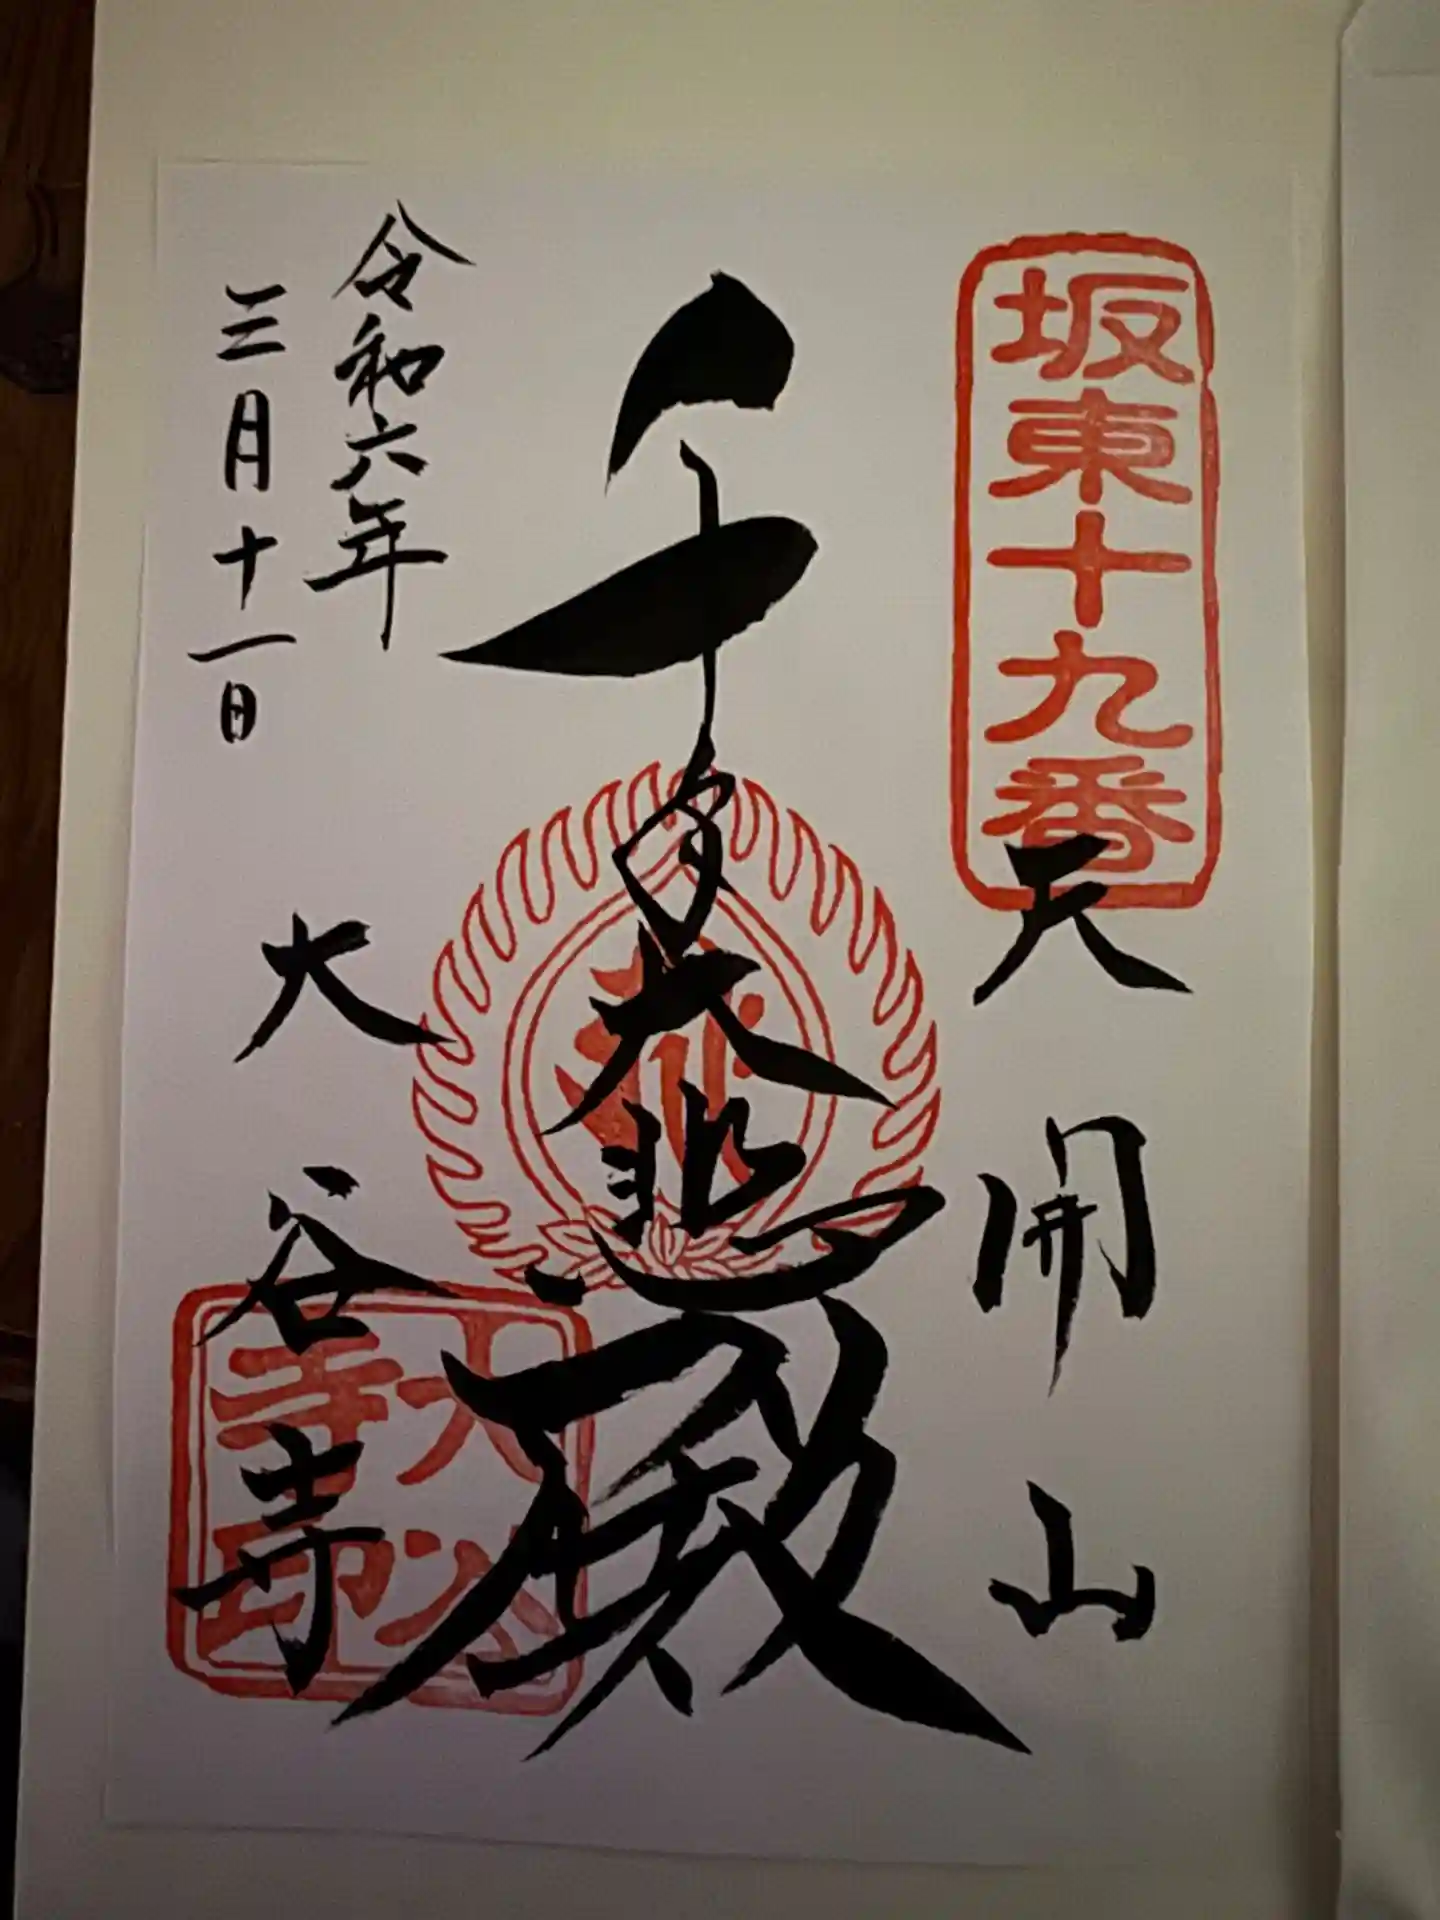 坂東十九番
天開山
千手大悲殿
令和六年
三月十一日
大谷寺
大谷寺印